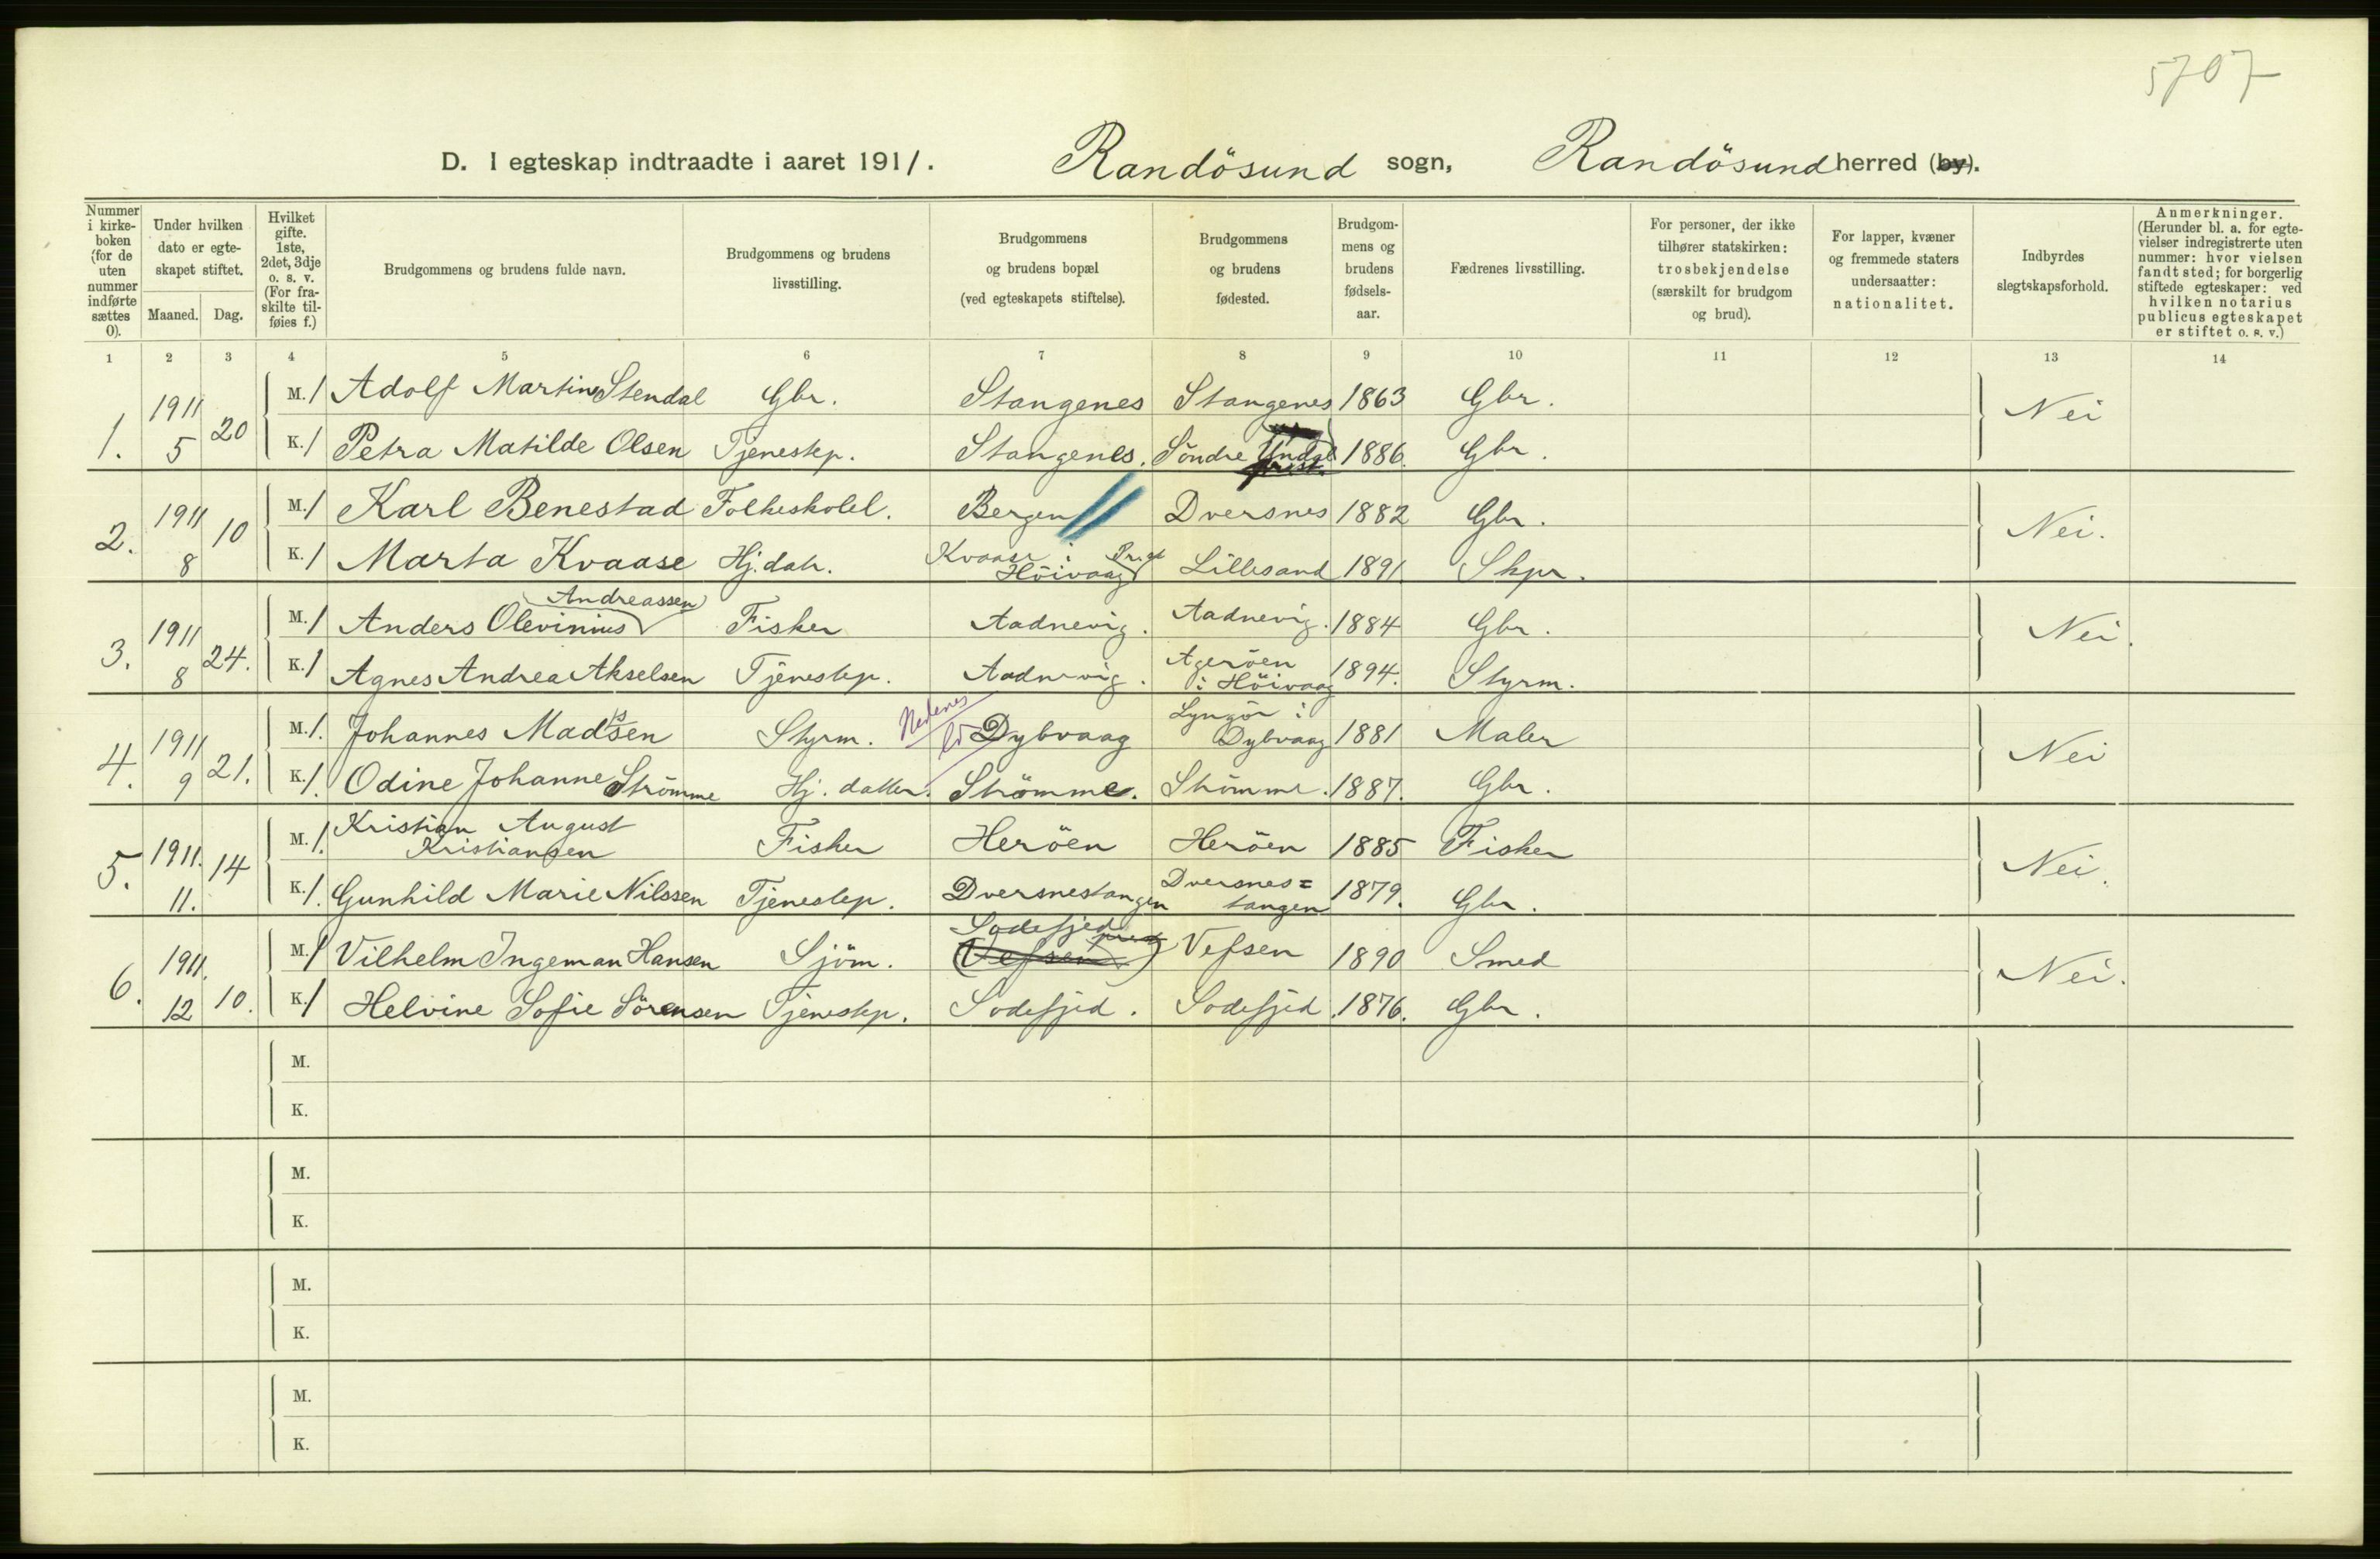 5707
D. I egteskap indtraadte i aaret 1911. Randösund sogn, Randösund herred (by).
Nummer i kirke-boken (for de uten nummer indførte sættes 0).
Under hvilken dato er egte-skapet stiftet.
Maaned. Dag.
Hvilket gifte. 1ste, 2det, 3dje o. s. v. (For fra-skilte til-føies f.)
Brudgommens og brudens fulde navn.
Brudgommens og brudens livsstilling.
Brudgommens og brudens bopæl (ved egteskapets stiftelse).
Brudgommens og brudens fødested.
Brudgom-mens og brudens fødsels-aar.
Fædrenes livsstilling.
For personer, der ikke tilhører statskirken: trosbekjendelse (særskilt for brudgom og brud).
For lapper, kvæner og fremmede staters undersaatter: nationalitet.
Indbyrdes slegtskapsforhold.
Anmerkninger. (Herunder bl. a. for egte-vielser indregistrerte uten nummer: hvor vielsen fandt sted; for borgerlig stiftede egteskaper: ved hvilken notarius publicus egteskapet er stiftet o. s. v.)
1 2 3 4 5 6 7 8 9 10 11 12 13 14
1. 1911 5 20 M. 1 Adolf Martin Stendal Gbr. Stangenes Stangenes 1863 Gbr. Nei
K. 1 Petra Matilde Olsen Tjenestep. Stangenes. Söndre Undal 1886. Gbr.
2. 1911 8 10 M. 1 Karl Benestad Folkeskolel. Bergen Dversnes 1882 Gbr. Nei.
K. 1 Marta Kvaase Hj. datr. Kvaase i Höivaag Pr.gt Lillesand 1891 Skpr.
3. 1911 8 24. M. 1 Anders Olevinius Andreassen Fisker Aadnevig. Aadnevig. 1884 Gbr. Nei.
K. 1 Agnes Andrea Akselsen Tjenestep. Aadnevig. Agerøen i Höivaag 1894. Styrm.
4. 1911 9 21. M. 1. Johannes Madssen Styrm. Nedenes Dybvaag Lyngör i Dybvaag 1881 Maler Nei
K. 1. Odine Johanne Strömme Hj. datter. Strömme. Strömme. 1887. Gbr.
5. 1911. 11. 14 M. 1. Kristian August Kristiansen Fisker Heröen Heröen 1885 Fisker Nei.
K. 1. Gunhild Marie Nilssen Tjenestep. Dversnestangen Dversnes= tangen 1879. Gbr.
6. 1911. 12 10. M. 1 Vilhelm Ingeman Hansen Sjöm. Sodefjed (Vefsen) Vefsen 1890 Smed Nei.
K. 1 Helvine Sofie Sörensen Tjenestep. Sodefjed. Sodefjed. 1876. Gbr.
M.
K.
M.
K.
M.
K.
M.
K.